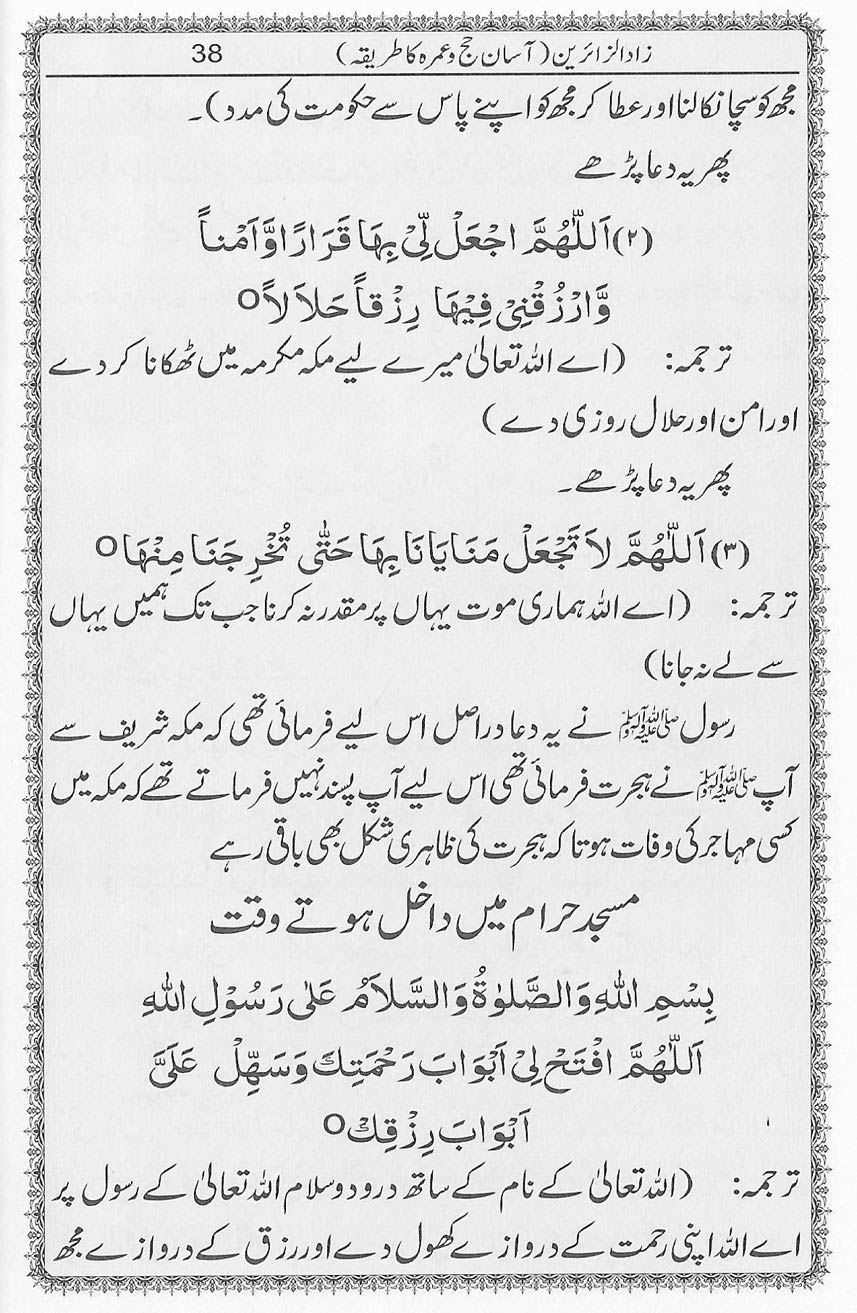 زاد الزائرین (آسان حج و عمرہ کا طریقہ) 38
مجھ کو سچا نکالنا اور عطا کر مجھ کو اپنے پاس سے حکومت کی مدد)۔
پھر یہ دعا پڑھے
(۲) اَللّٰهُمَّ اجْعَلْ لِّيْ بِهَا قَرَارًا وَّاَمْناً
وَّارْزُقْنِيْ فِيْهَا رِزْقاً حَلاَلاً○
ترجمہ: (اے اللہ تعالیٰ میرے لیے مکہ مکرمہ میں ٹھکانا کر دے
اور امن اور حلال روزی دے)
پھر یہ دعا پڑھے۔
(۳) اَللّٰهُمَّ لاَ تَجْعَلْ مَنَايَانَا بِهَا حَتّٰى تُخْرِجَنَا مِنْهَا○
ترجمہ: (اے اللہ ہماری موت یہاں پر مقدر نہ کرنا جب تک ہمیں یہاں
سے لے نہ جانا)
رسول ﷺ نے یہ دعا دراصل اس لیے فرمائی تھی کہ مکہ شریف سے
آپ ﷺ نے ہجرت فرمائی تھی اس لیے آپ پسند نہیں فرماتے تھے کہ مکہ میں
کسی مہاجر کی وفات ہو تاکہ ہجرت کی ظاہری شکل بھی باقی رہے
مسجد حرام میں داخل ہوتے وقت
بِسْمِ اللهِ وَالصَّلٰوةُ وَالسَّلاَمُ عَلٰى رَسُوْلِ اللهِ
اَللّٰهُمَّ افْتَحْ لِيْ اَبْوَابَ رَحْمَتِكَ وَسَهِّلْ عَلَيَّ
اَبْوَابَ رِزْقِكَ○
ترجمہ: (اللہ تعالیٰ کے نام کے ساتھ درود و سلام اللہ تعالیٰ کے رسول پر
اے اللہ اپنی رحمت کے دروازے کھول دے اور رزق کے دروازے مجھ